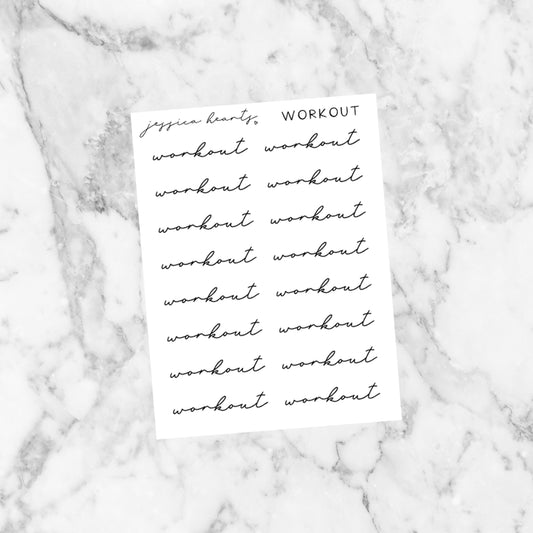 jessica hearts WORKOUT
workout workout
workout workout
workout workout
workout workout
workout workout
workout workout
workout workout
workout workout